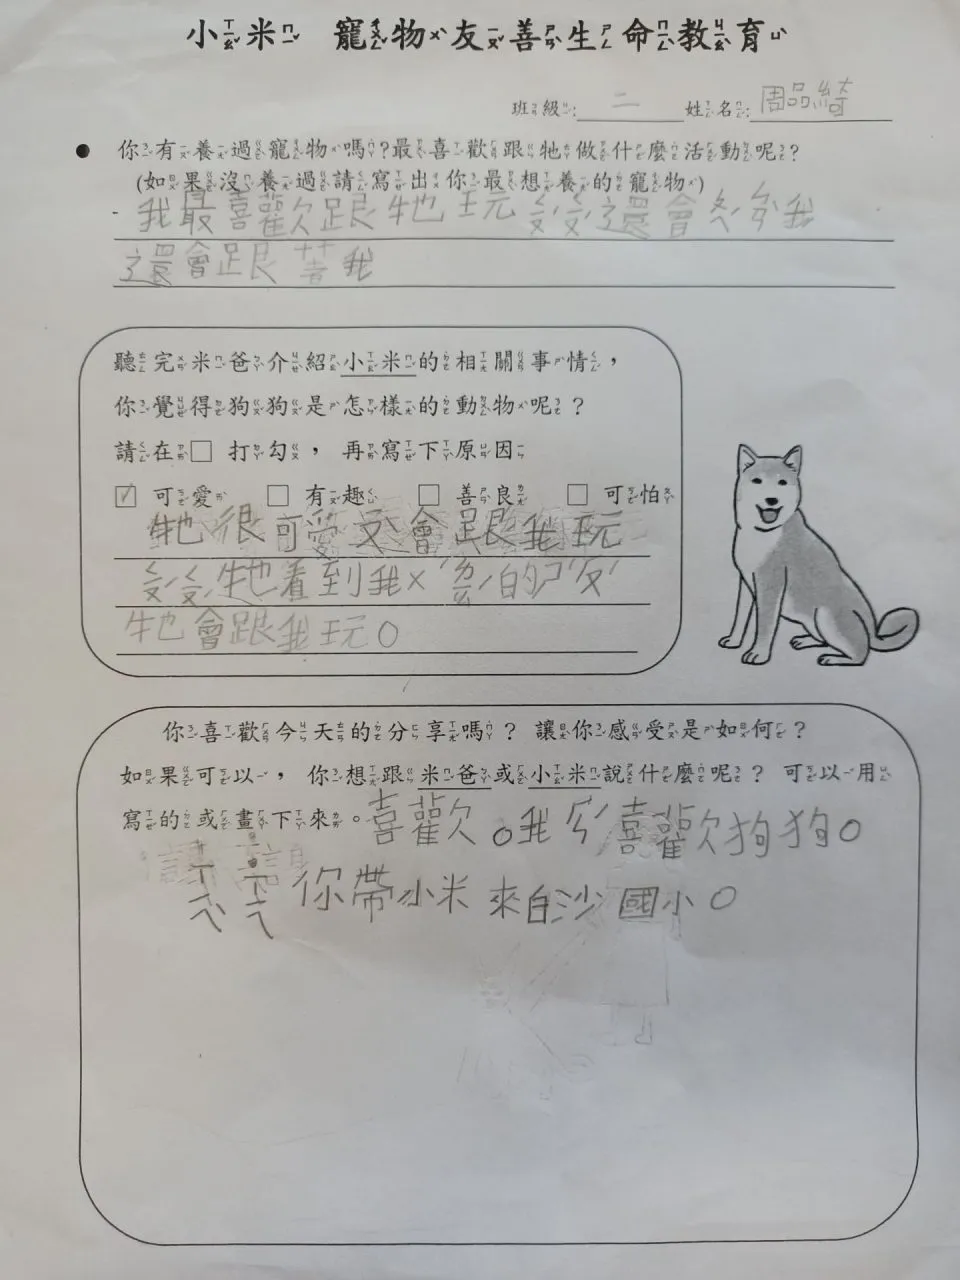 小米 寵物友善生命教育
班級:二 姓名:周品綺
● 你有養過寵物嗎?最喜歡跟牠做什麼活動呢?
(如果沒養過請寫出你最想養的寵物)
我最喜歡跟牠玩 還會 我
還會跟 我
聽完米爸介紹小米的相關事情,
你覺得狗狗是怎樣的動物呢?
請在□ 打勾, 再寫下原因
☑ 可愛 □ 有趣 □ 善良 □ 可怕
牠很可愛又會跟我玩
牠看到我ㄨ 的
牠會跟我玩。
你喜歡今天的分享嗎? 讓你感受是如何?
如果可以, 你想跟米爸或小米說什麼呢? 可以用
寫的或畫下來。喜歡。我 喜歡狗狗。
ㄒㄧㄟˋ ㄒㄧㄟ 你帶小米 來白沙國小。